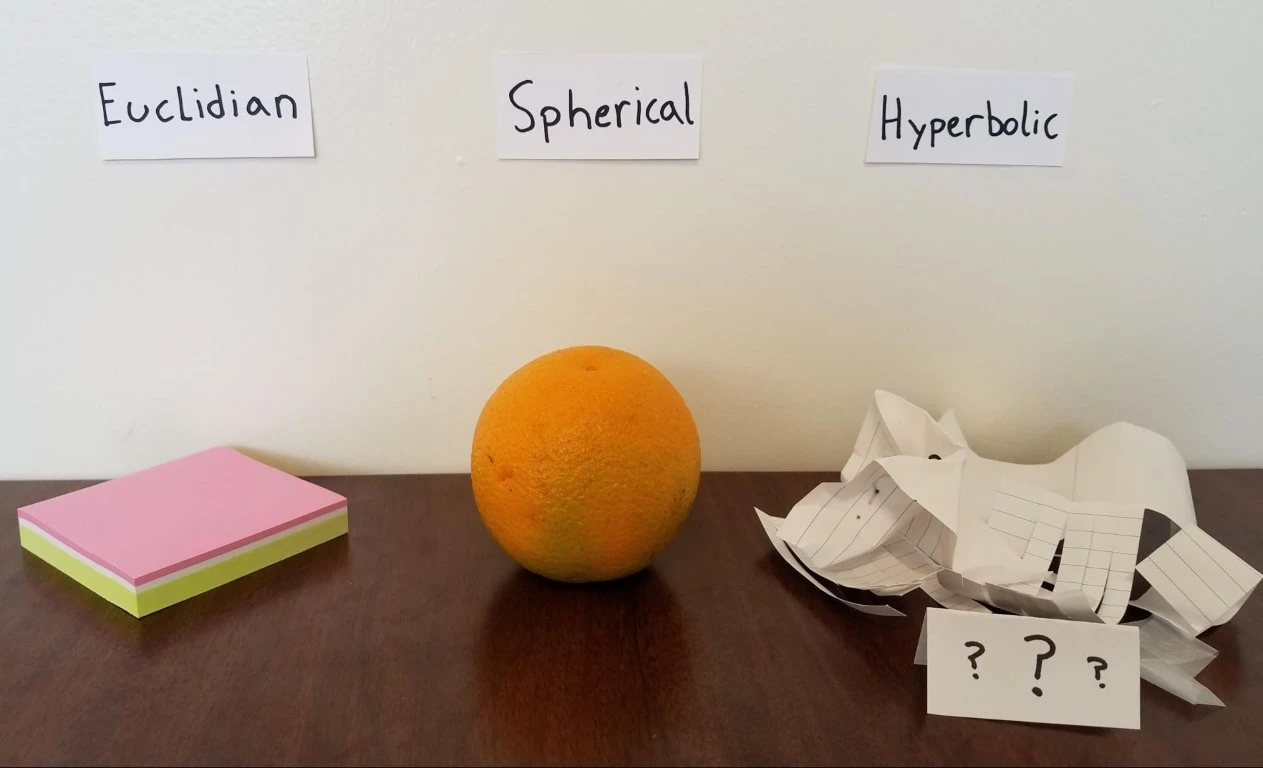 Euclidian
Spherical
Hyperbolic
? ? ?